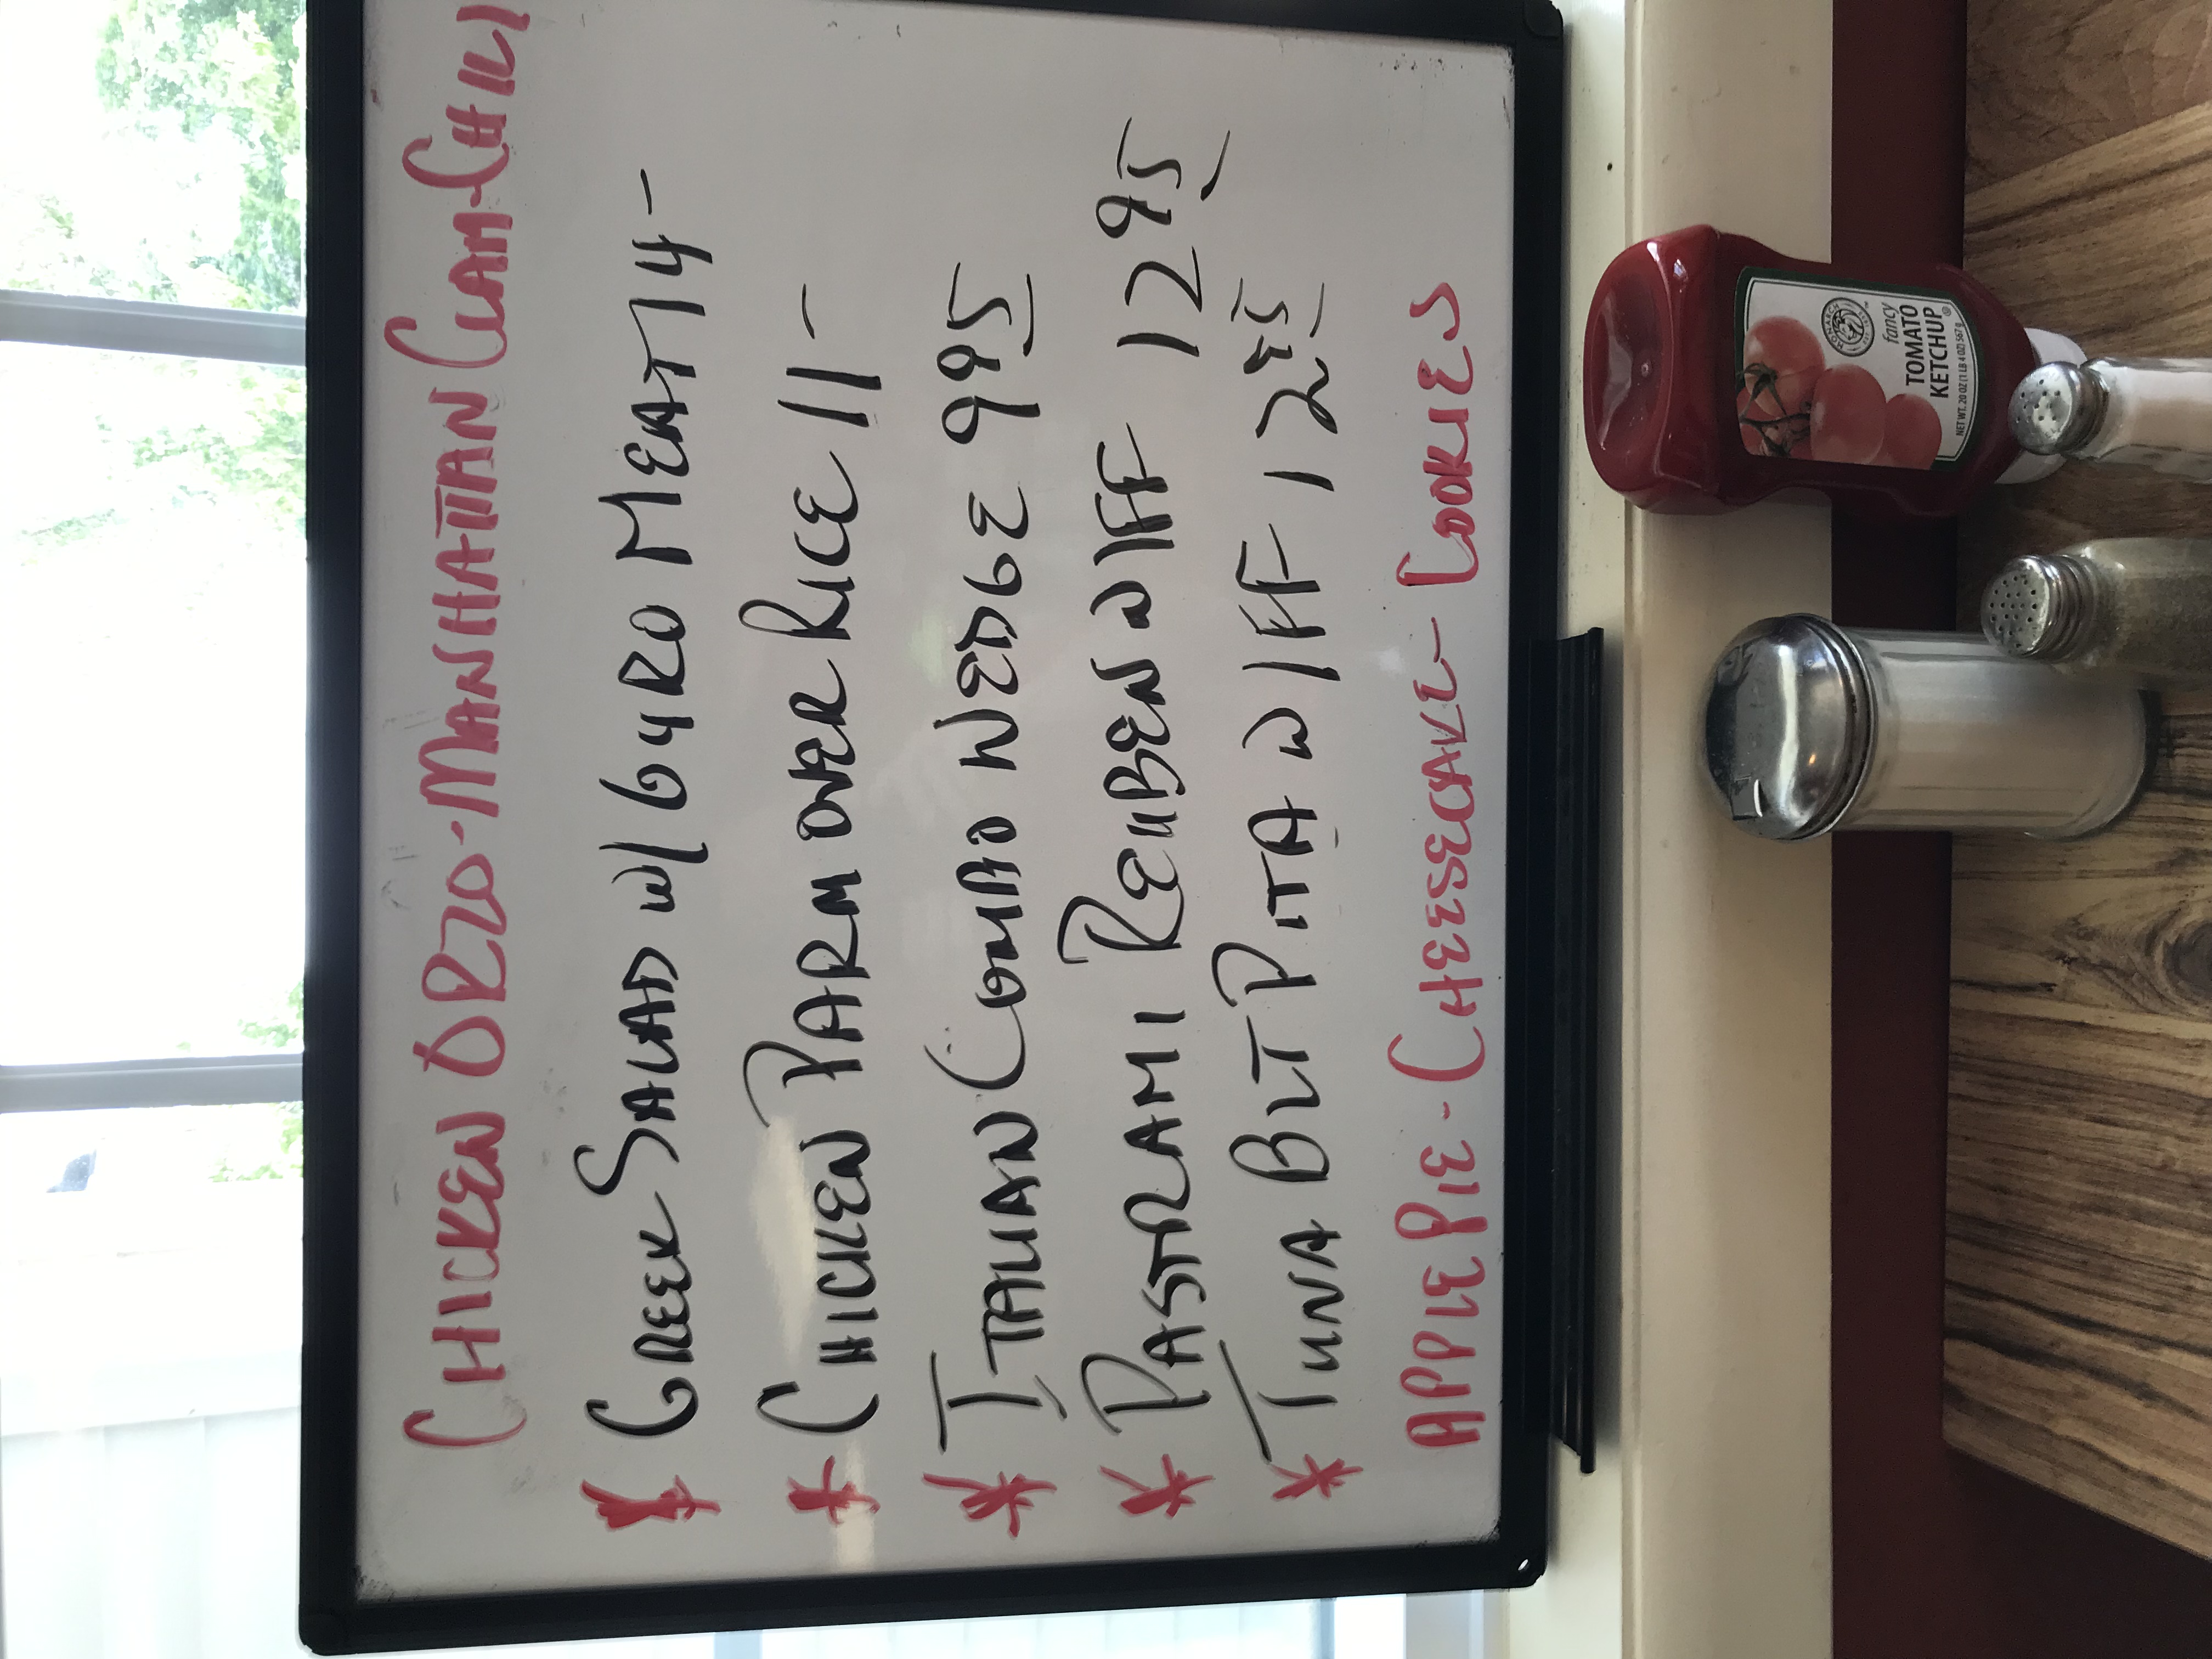 CHICKEN ORZO-MANHATTAN CLAM-CHILI
* GREEK SALAD W/ GYRO MEAT 14-
* CHICKEN PARM OVER RICE 11-
* ITALIAN COMBO WEDGE 995
* PASTRAMI REUBEN W/FF 1295
* TUNA BLT PITA W/FF 12
APPLE PIE-CHEESECAKE-COOKIES
MONARCH
fancy
TOMATO
KETCHUP
NET WT. 20 OZ (1 LB 4 OZ) 567g